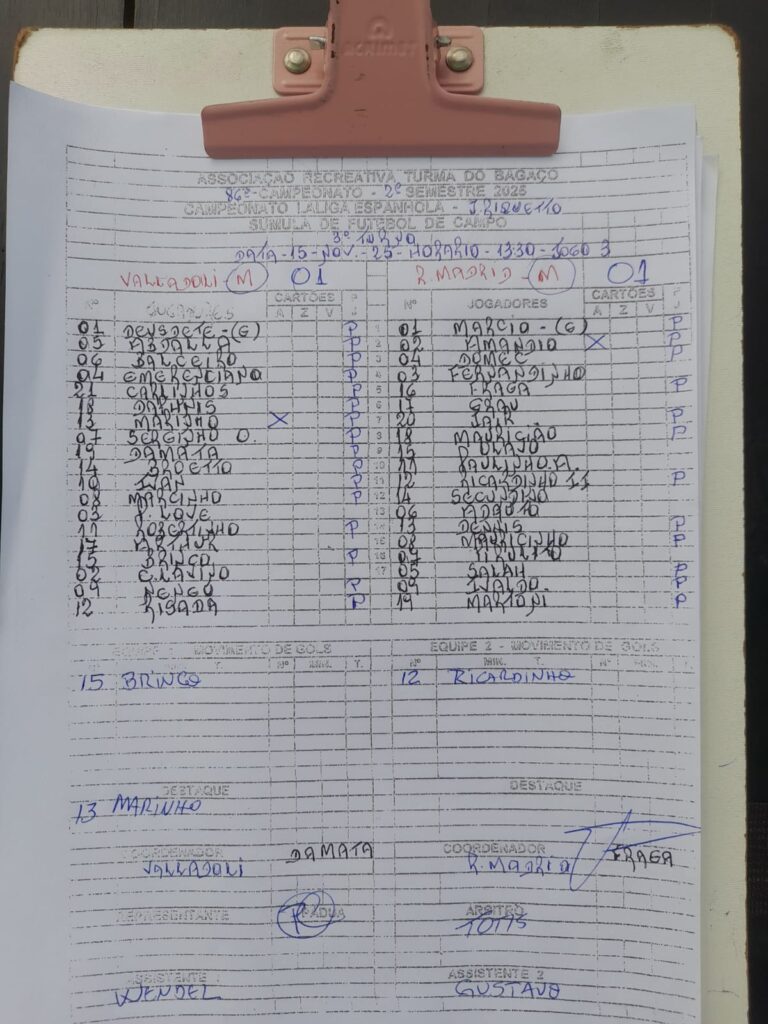 ASSOCIAÇÃO RECREATIVA TURMA DO BAGAÇO
86º-CAMPEONATO - 2º SEMESTRE 2025
CAMPEONATO LALIGA ESPANHOLA - J.RIQUETTO
SÚMULA DE FUTEBOL DE CAMPO
3º TURNO
DATA-15-NOV.-25-HORARIO-13:30-JOGO 3
VALLADOLI-M 01 R.MADRID-M 01
Nº JOGADORES CARTÕES A Z V P J Nº JOGADORES CARTÕES A Z V P J
01 DEUSDETE-(G) P 1 01 MARCIO-(G) P
05 ABDALLA P 2 02 AMANDIO X P
06 BALCEIRO P 3 04 DOMEC P
04 EMERENCIANO P 4 03 FERNANDINHO
21 CARLINHOS P 5 16 FRAGA P
18 P 6 17 GRAU
13 MARINHO X P 7 20 JAIR P
07 SERGINHO O. P 8 18 MAURICIÃO P
19 DAMATA P 9 15 P. OLAVO
14 BROETTO P 10 11 PAULINHO.A.
10 IVAN P 11 12 RICARDINHO II P
08 MARCINHO P 12 14 SECUNDINO
03 P. LOVE 13 06 ADAUTO
11 ROBERTINHO P 14 13 DENNIS P
17 ARTHUR 15 08 MAURICINHO P
15 BRINCO P 16 07 TIRULITO
02 CLAVINO 17 05 SALAH P
09 NENGO P 09 IVALDO. P
12 RISADA P 19 MARIONI P
EQUIPE 1 MOVIMENTO DE GOLS EQUIPE 2 - MOVIMENTO DE GOLS
T. Nº MIN. T. Nº MIN. T. Nº MIN. T.
15 BRINCO 12 RICARDINHO
DESTAQUE DESTAQUE
13 MARINHO
COORDENADOR DAMATA COORDENADOR FRAGA
VALLADOLI R.MADRID
REPRESENTANTE PADUA ARBITRO
ASSISTENTE 1 ASSISTENTE 2
WENDEL GUSTAVO